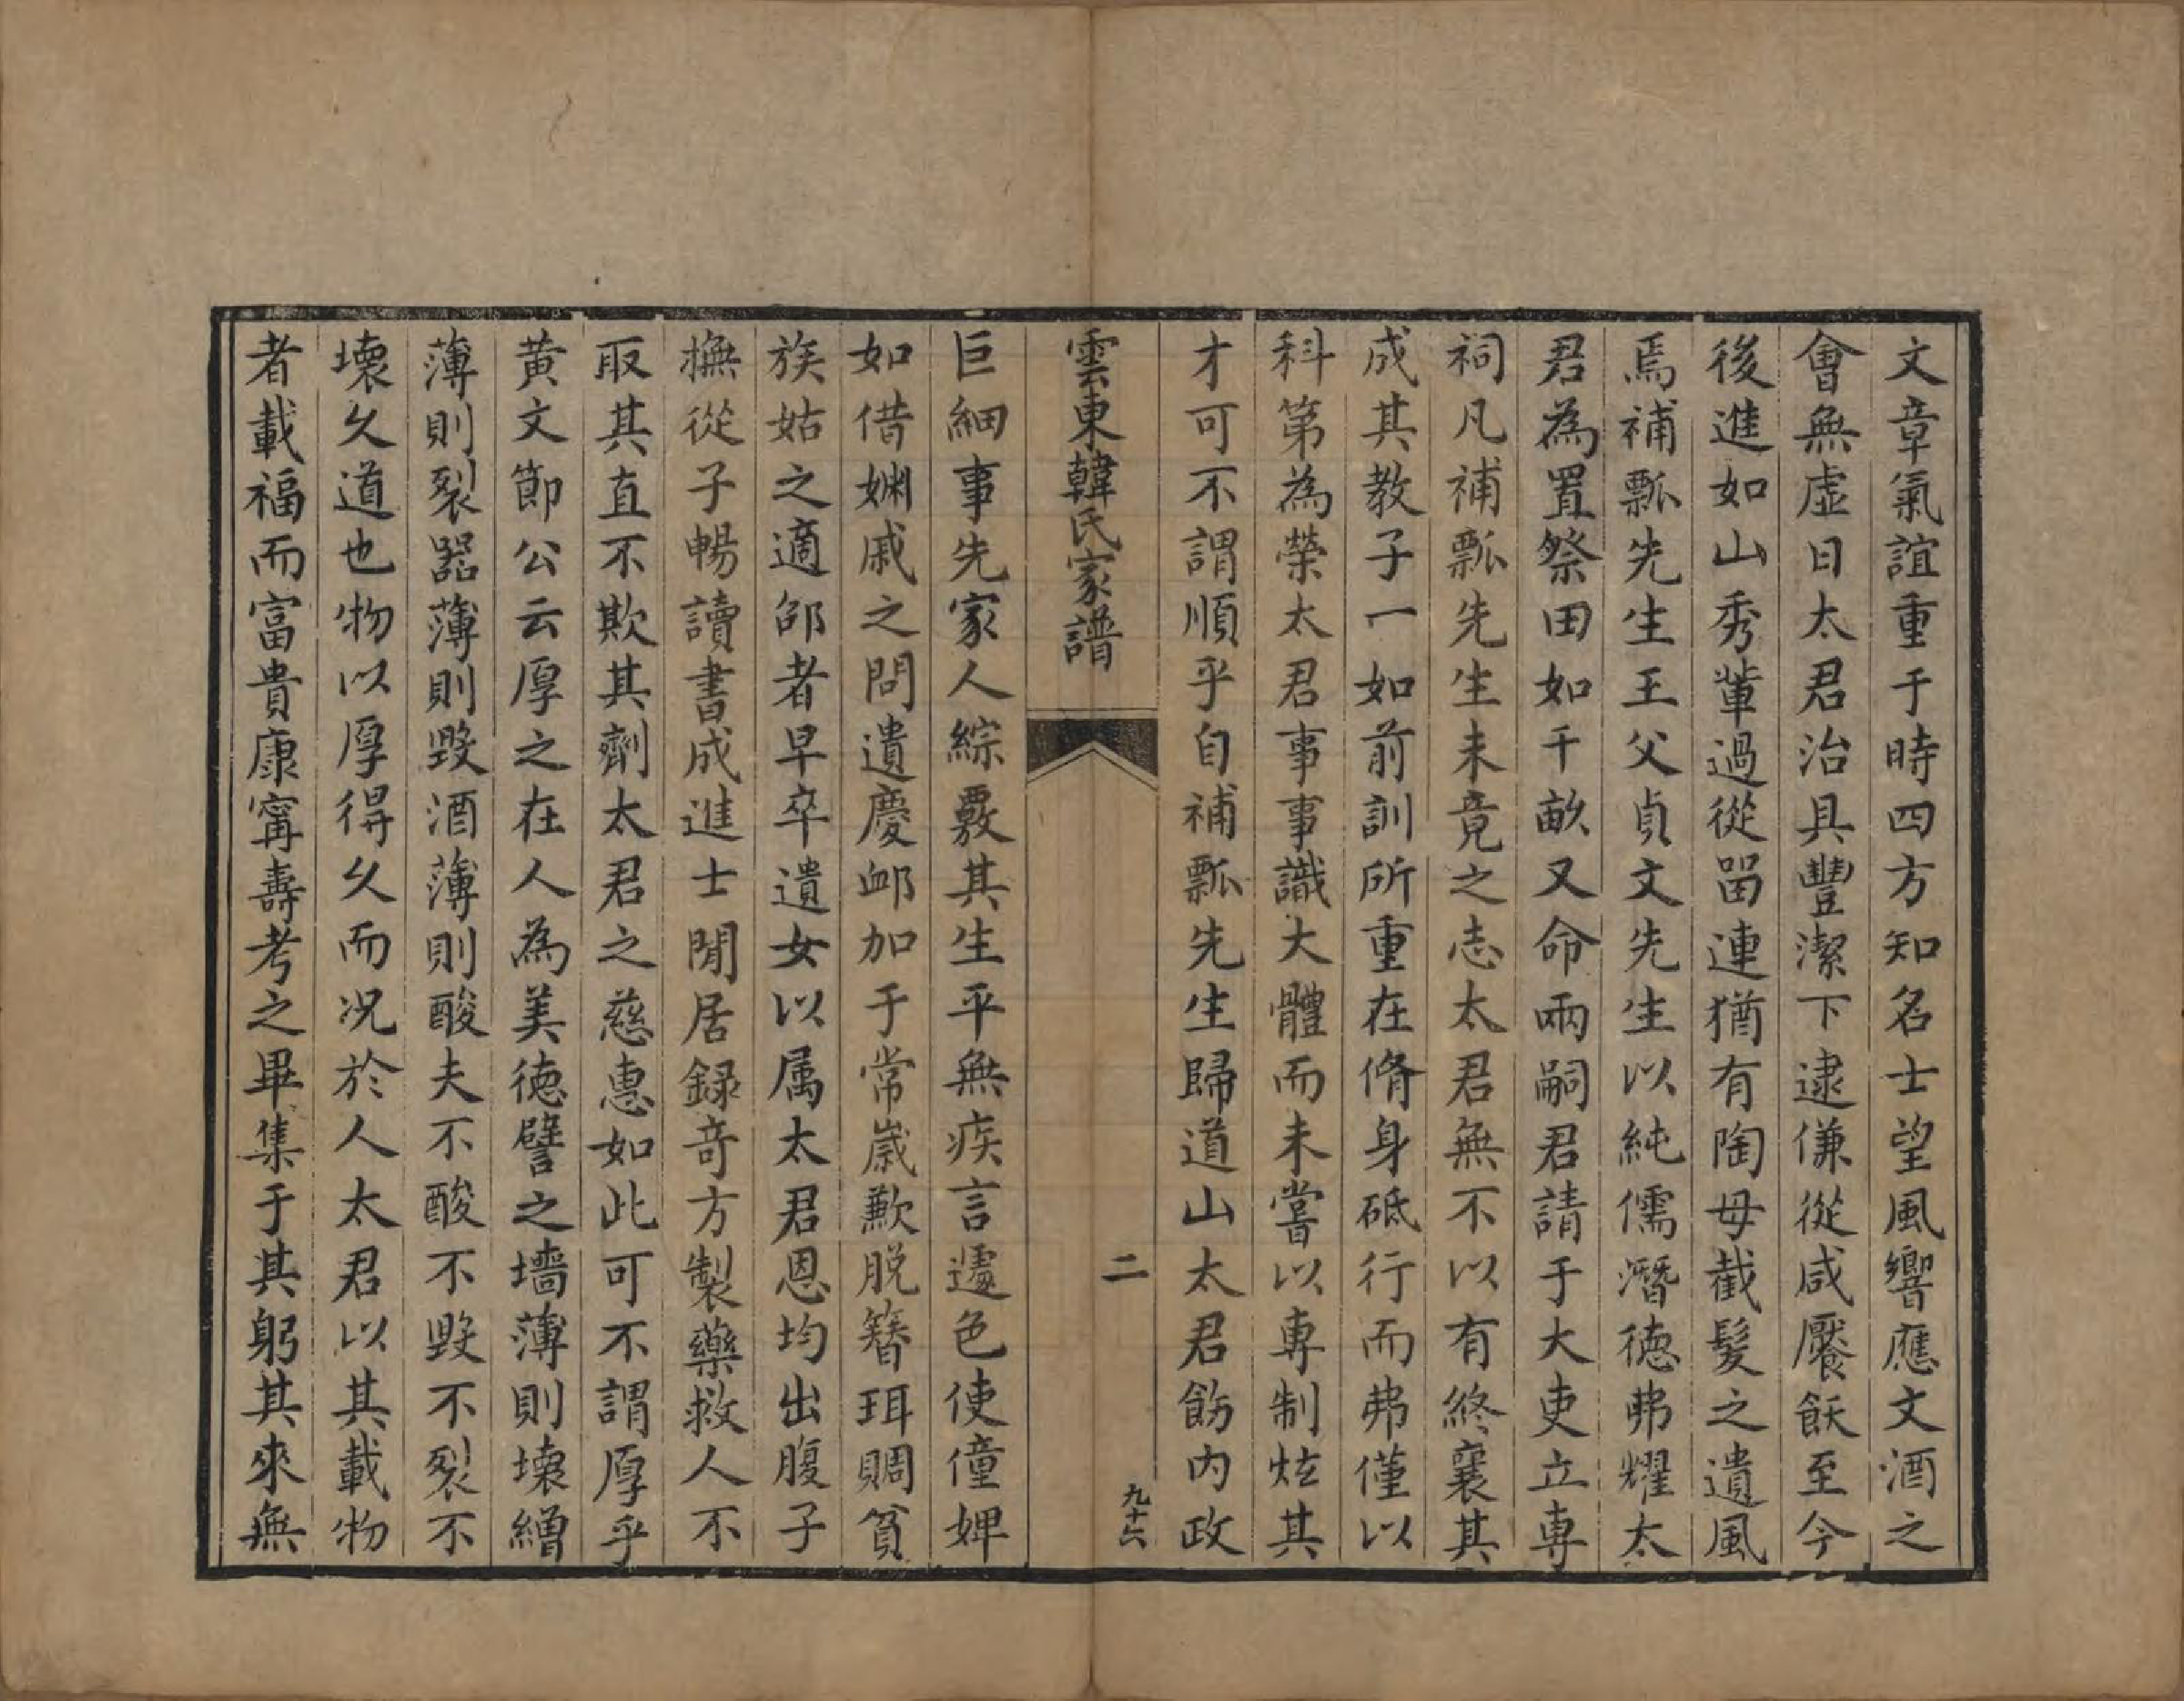 文章氣誼重于時四方知名士望風響應文酒之
會無虛日太君治具豐潔下逮傔從咸饜飫至今
後進如山秀輩過從留連猶有陶母截髮之遺風
焉補瓢先生王父貞文先生以純儒潛徳弗耀太
君為置祭田如干畝又命兩嗣君請于大吏立專
祠凡補瓢先生未竟之志太君無不以有終襄其
成其教子一如前訓所重在脩身砥行而弗僅以
科第為榮太君事事識大體而未嘗以專制炫其
才可不謂順乎自補瓢先生歸道山太君飭内政
雲東韓氏家譜
二
九十六
巨細事先家人綜覈其生平無疾言遽色使僮婢
如借婣戚之問遺慶卹加于常歲歉脱簪珥賙貧
族姑之適邵者早卒遺女以属太君恩均出腹子
撫從子暢讀書成進士閒居録竒方製藥救人不
取其直不欺其劑太君之慈惠如此可不謂厚乎
黄文節公云厚之在人為美徳譬之墻薄則壞繒
薄則裂器薄則毀酒薄則酸夫不酸不毀不裂不
壞久道也物以厚得久而况於人太君以其載物
者載福而富貴康寗壽考之畢集于其躬其來無